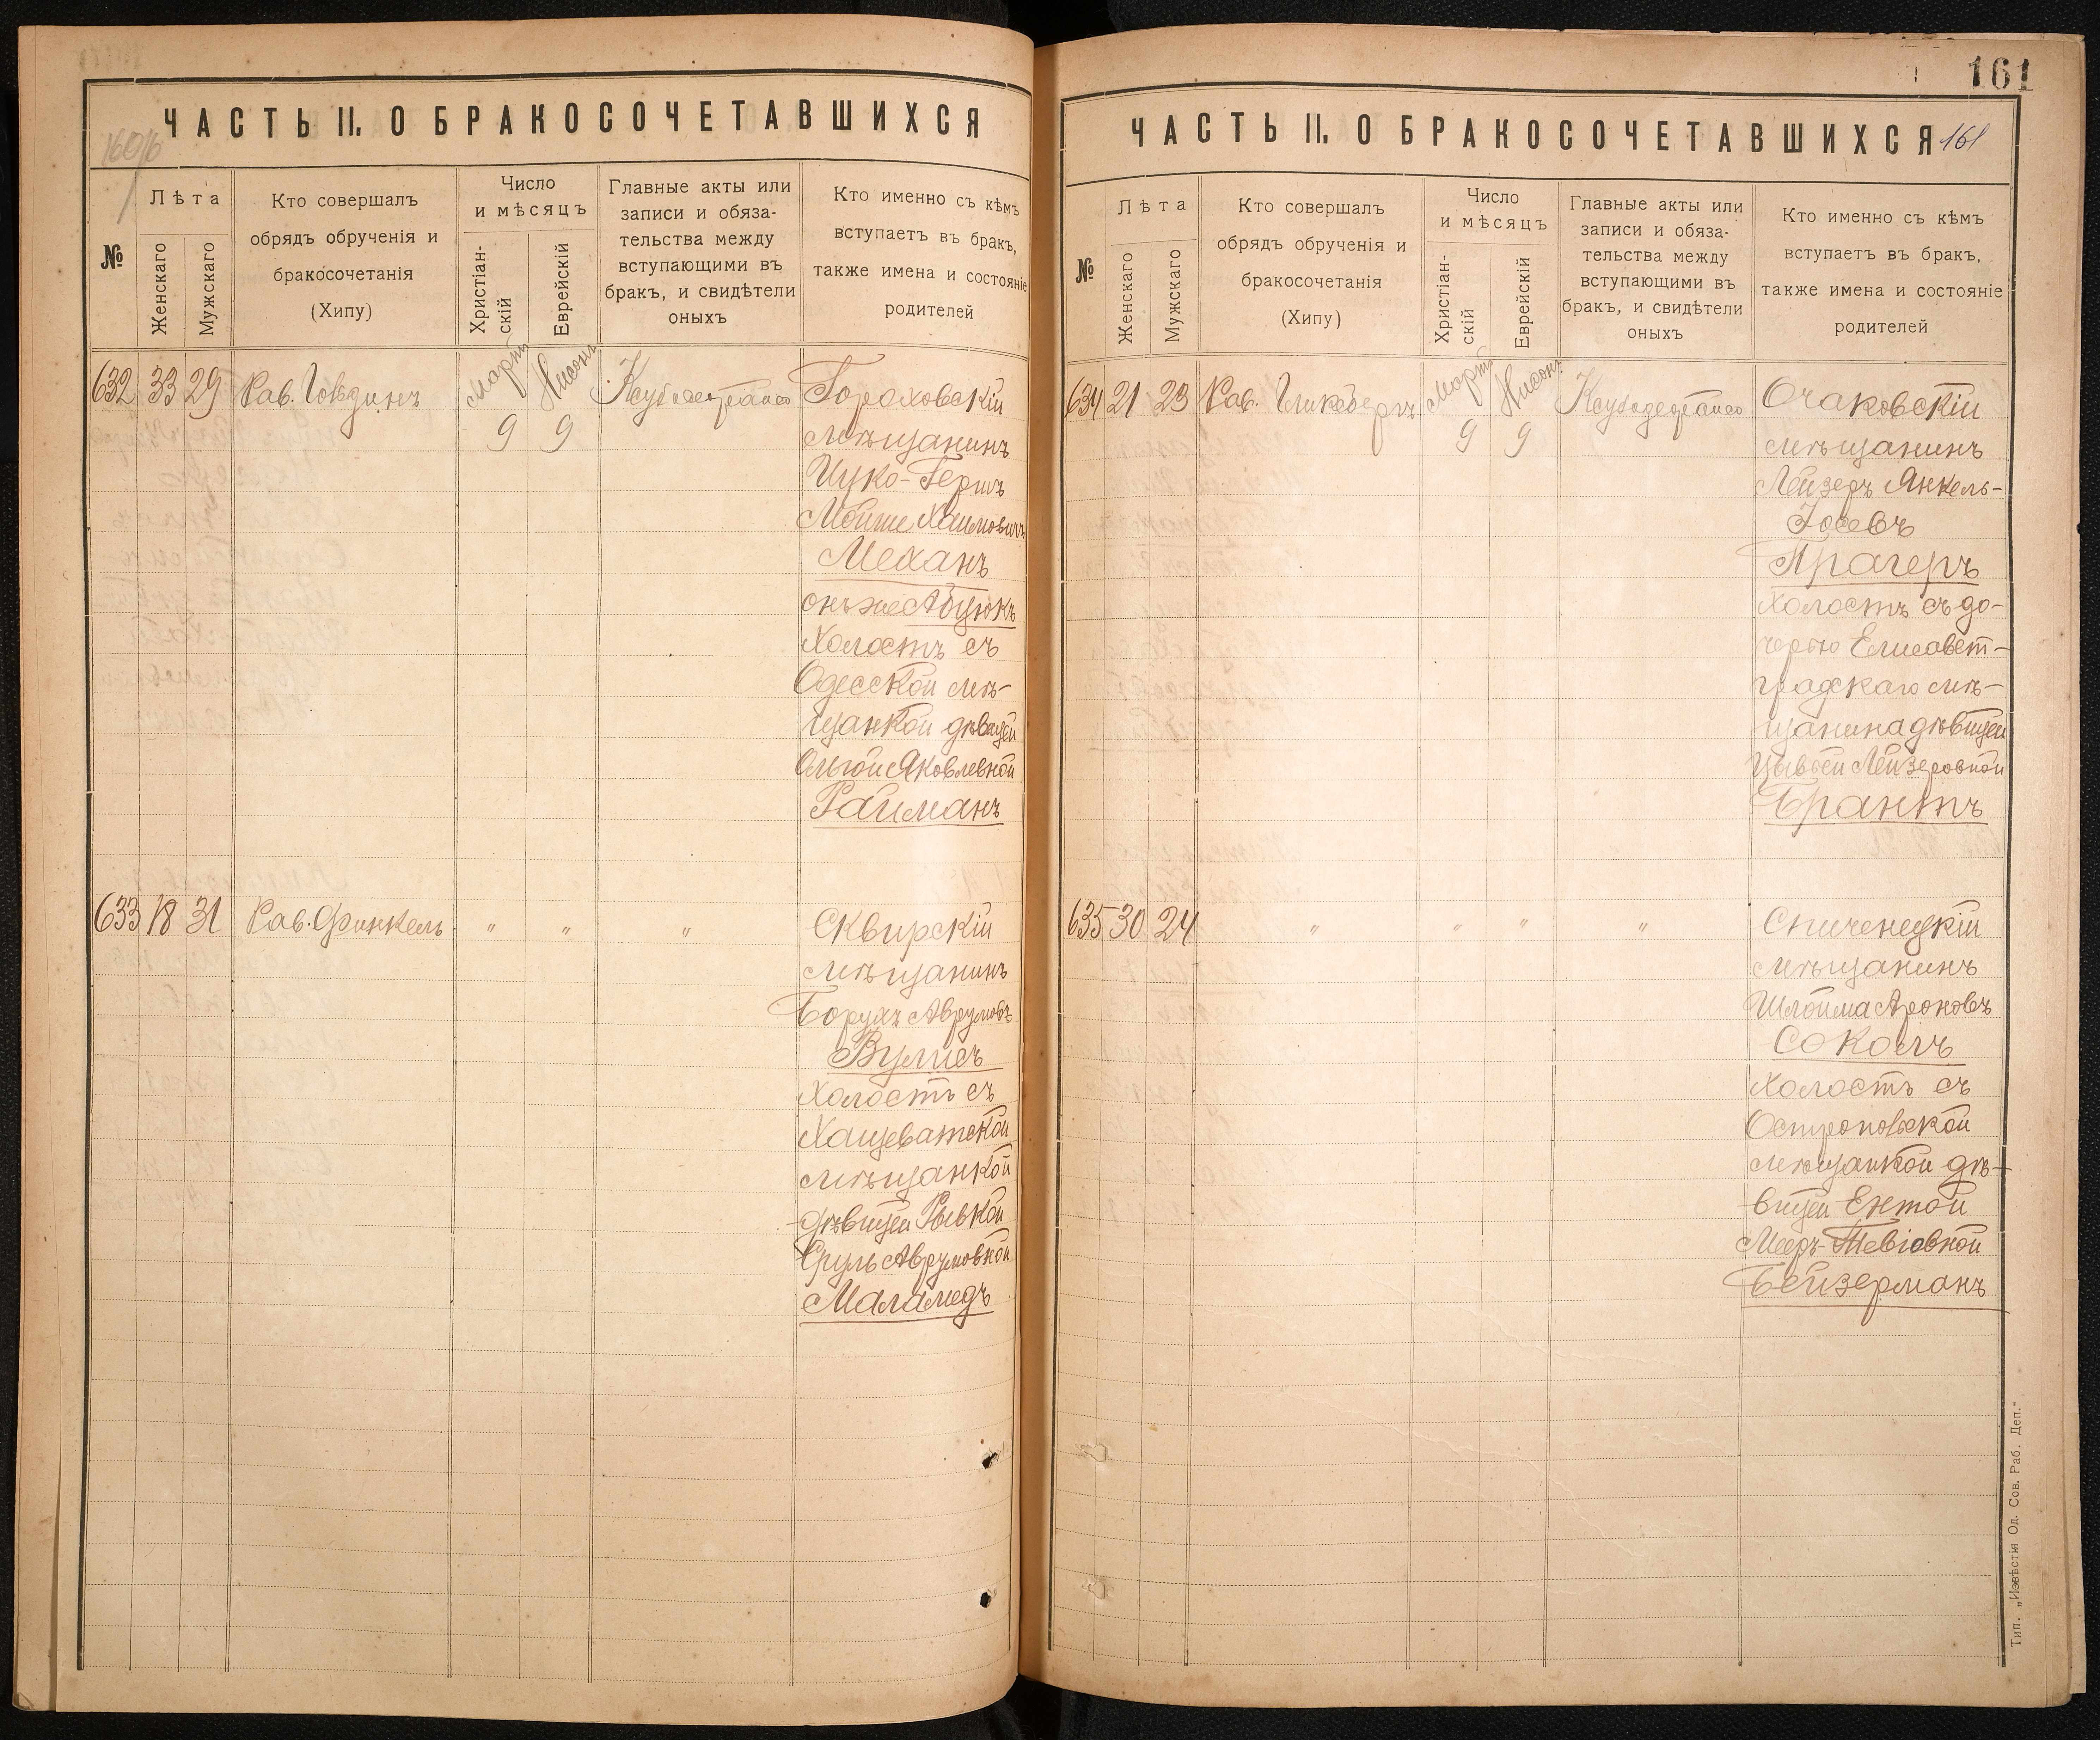 ЧАСТЬ II. О БРАКОСОЧЕТАВШИХСЯ
№
Лѣта
Женскаго
Мужскаго
Кто совершалъ
обрядъ обрученія и
бракосочетанія
(Хипу)
Число
и мѣсяцъ
Христіан-
скій
Еврейскій
Главные акты или
записи и обяза-
тельства между
вступающими въ
бракъ, и свидѣтели
оныхъ
Кто именно съ кѣмъ
вступаетъ въ бракъ,
также имена и состояніе
родителей
632 33 29 Рав. Мартъ Нисонъ
9 9
Гороховскій
мѣщанинъ
Ицко-Гершъ
Мойше Хаимовичъ
Механъ
онъ же Абцюкъ
Холостъ съ
Одесской мѣ-
щанкой дѣвицей
Ольгой Яковлевной
Райманъ
633 18 31 Рав. Финкель " " "
Сквирскій
мѣщанинъ
Борухъ Аврумовъ
Вулисъ
Холостъ съ
Хащеватской
мѣщанкой
дѣвицей Рывкой
Сруль Аврумовной
Маламедъ
161
ЧАСТЬ II. О БРАКОСОЧЕТАВШИХСЯ 161
№
Лѣта
Женскаго
Мужскаго
Кто совершалъ
обрядъ обрученія и
бракосочетанія
(Хипу)
Число
и мѣсяцъ
Христіан-
скій
Еврейскій
Главные акты или
записи и обяза-
тельства между
вступающими въ
бракъ, и свидѣтели
оныхъ
Кто именно съ кѣмъ
вступаетъ въ бракъ,
также имена и состояніе
родителей
634 21 23 Рав. Гликсбергъ Мартъ Нисонъ
9 9
Очаковскій
мѣщанинъ
Лейзеръ Янкель-
Іосевъ
Прагеръ
Холостъ съ до-
черью Елисавет-
градскаго мѣ-
щанина дѣвицей
Цывьей Лейзеровной
Брантъ
635 30 24 " " " "
Спиченецкій
мѣщанинъ
Шлойма Ароновъ
Соколъ
Холостъ съ
Остропольской
мѣщанкой дѣ-
вицей Ентой
Мееръ-Тевіовной
Бейзерманъ
Тип. „Извѣстія Од. Сов. Раб. Деп."